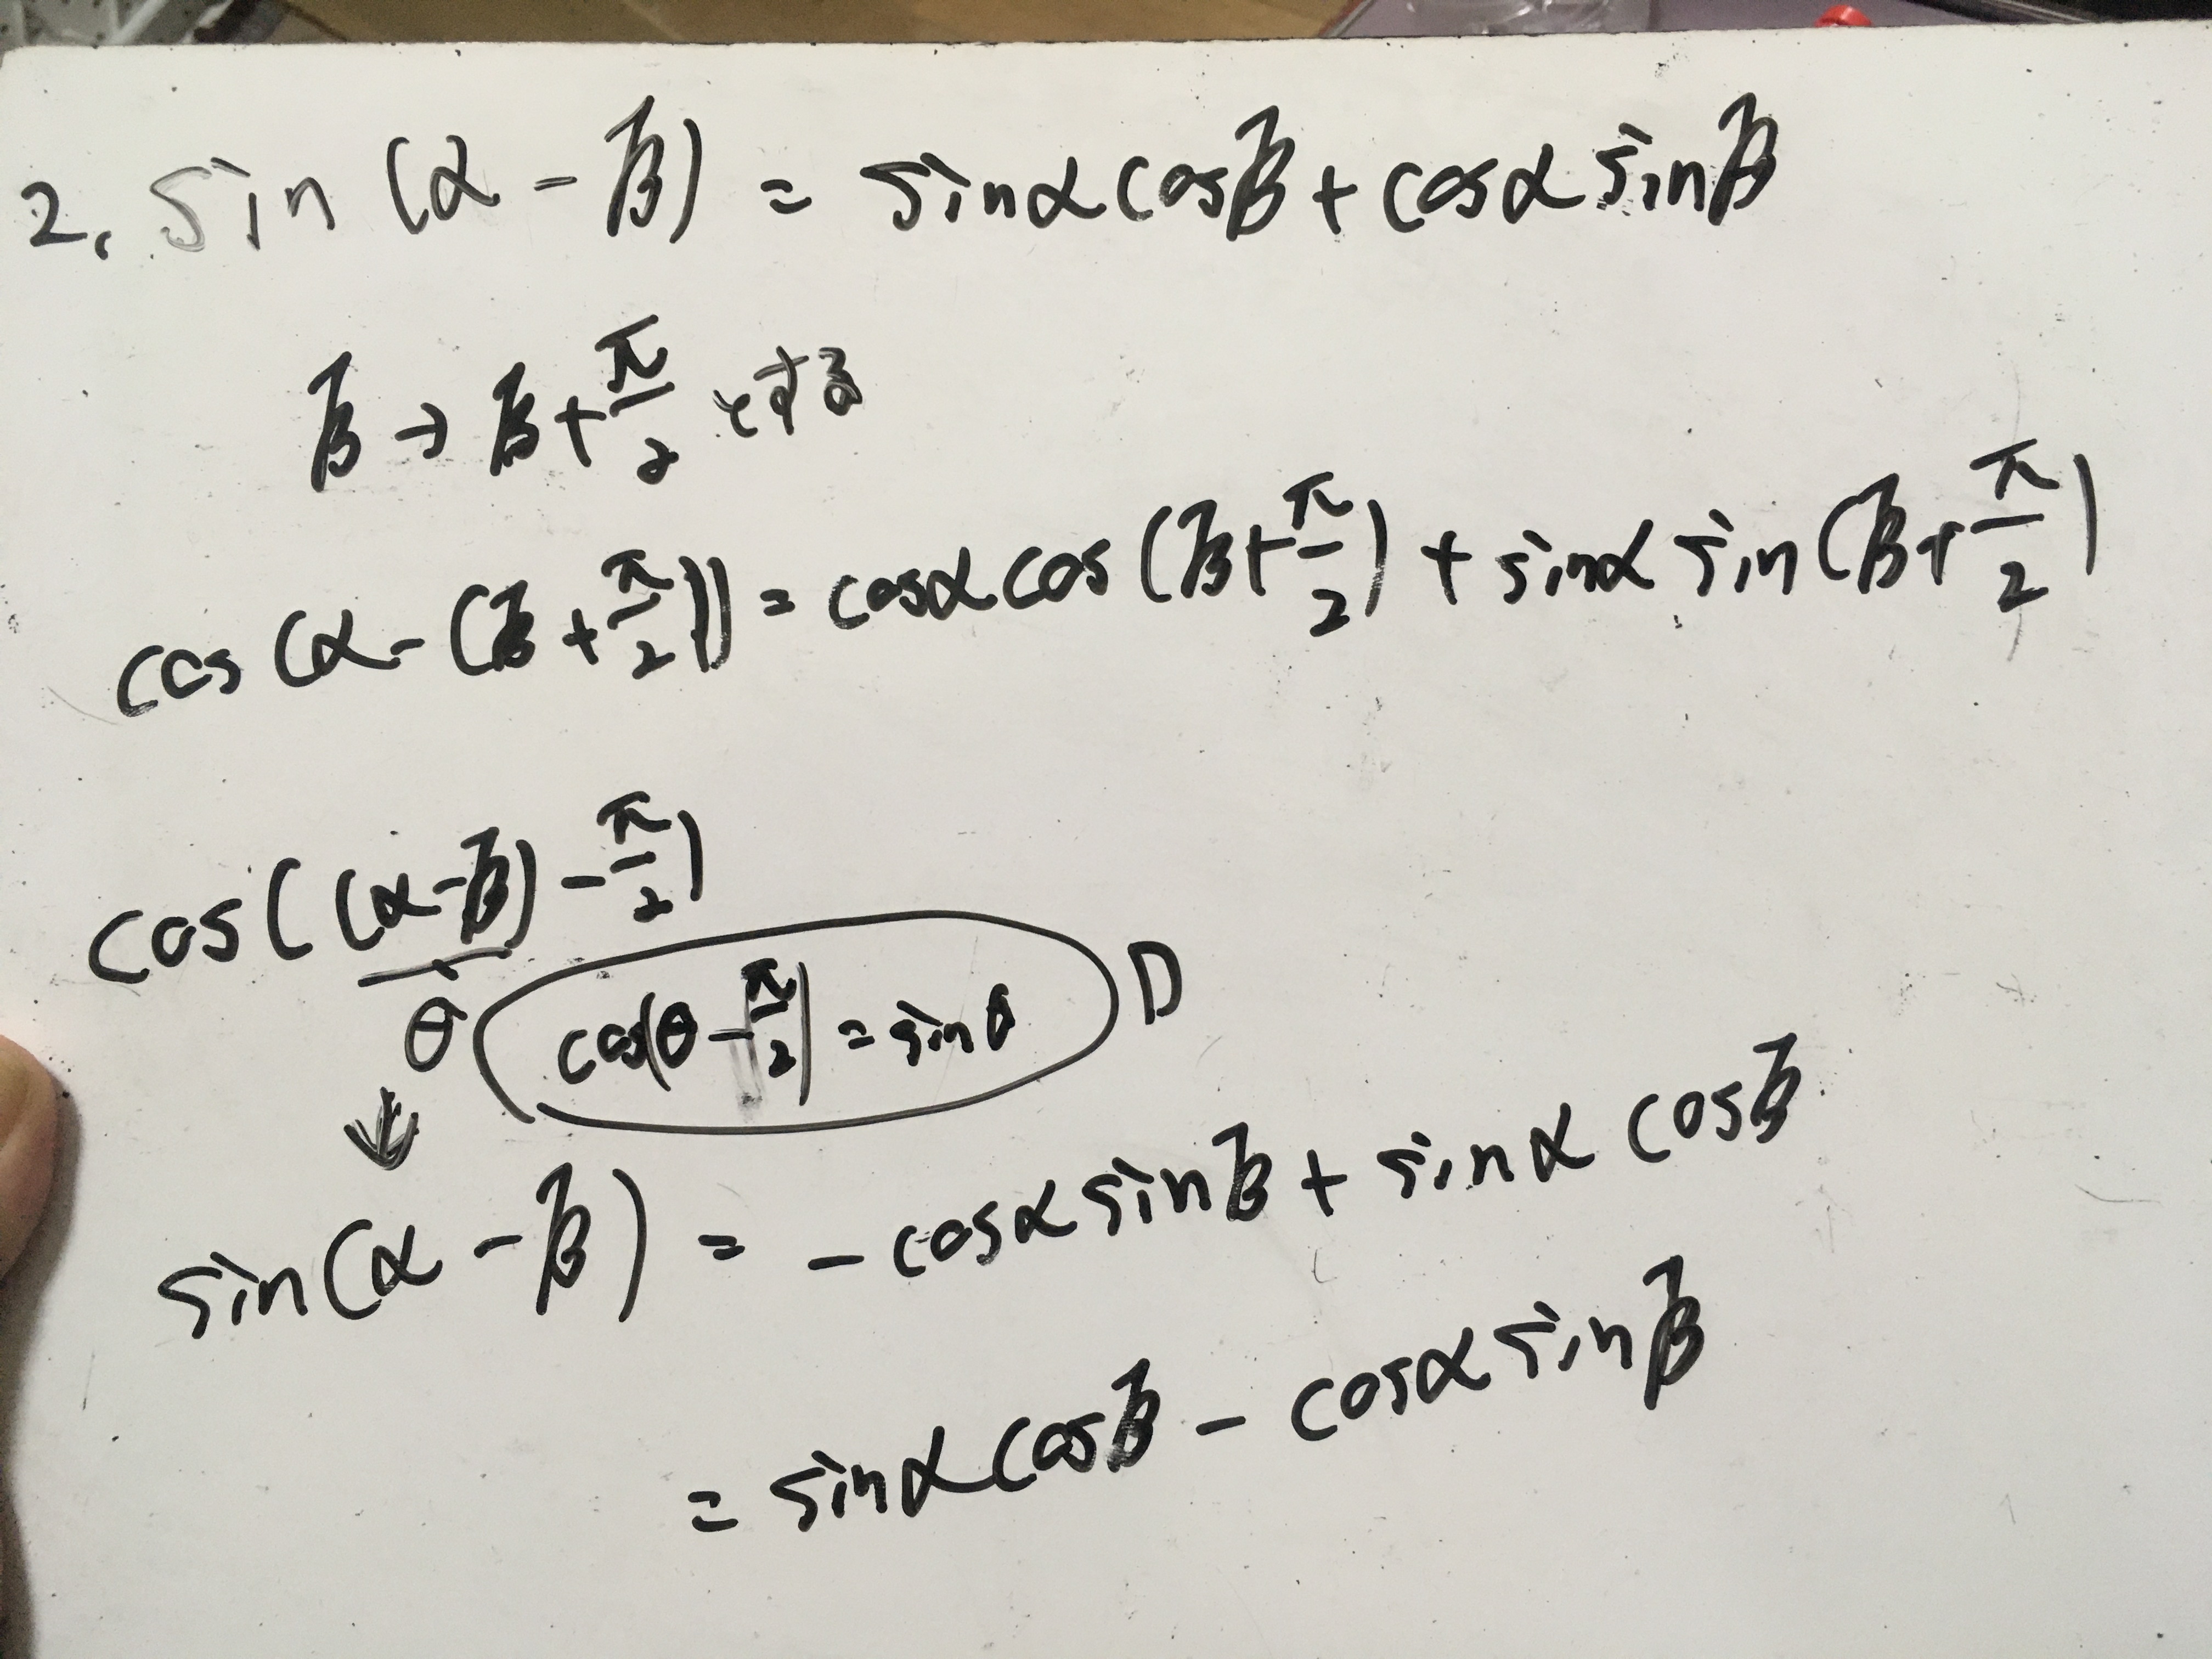 2. sin(α-β) = sinαcosβ + cosαsinβ
β → β + π/2 とする
cos(α-(β+π/2)) = cosαcos(β+π/2) + sinαsin(β+π/2)
cos((α-β)-π/2)
θ
cos(θ-π/2) = sinθ
↓
sin(α-β) = -cosαsinβ + sinαcosβ
= sinαcosβ - cosαsinβ